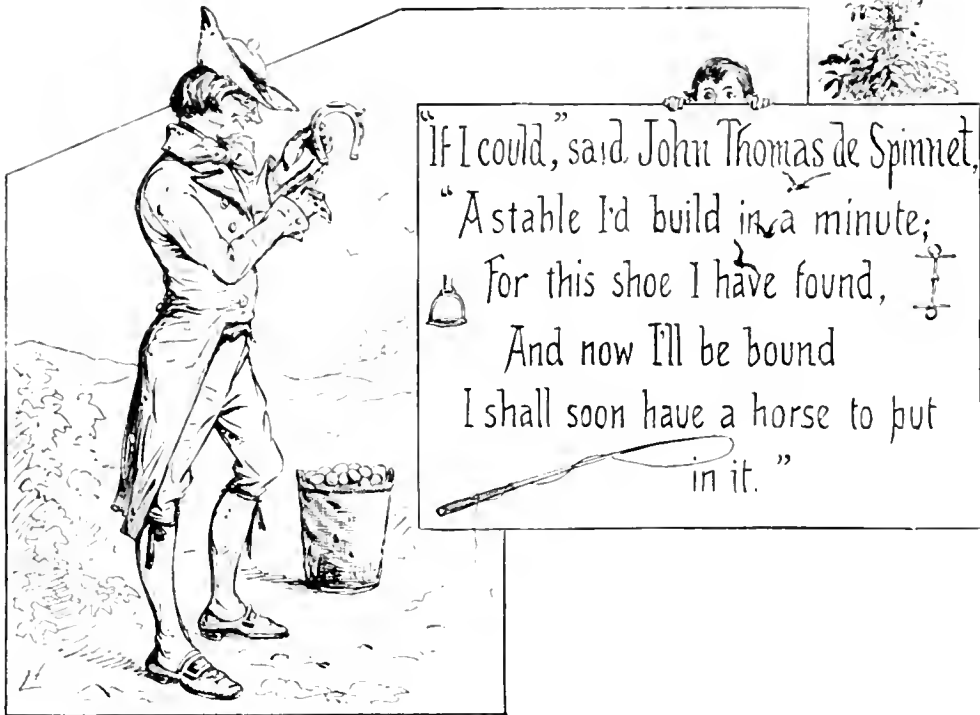 "If I could," said John Thomas de Spinnet,
"A stable I'd build in a minute;
For this shoe I have found,
And now I'll be bound
I shall soon have a horse to put
in it."